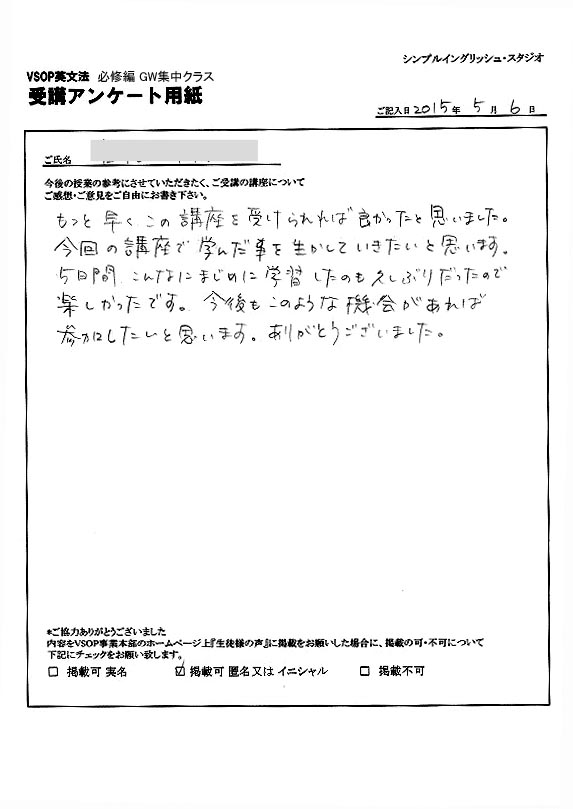 シンプルイングリッシュ・スタジオ
VSOP英文法 必修編 GW集中クラス
受講アンケート用紙
ご記入日2015年 5月 6日
ご氏名
今後の授業の参考にさせていただきたく、ご受講の講座について
ご感想・ご意見をご自由にお書き下さい。
もっと早くこの講座を受けられれば良かったと思いました。
今回の講座で学んだ事を生かしていきたいと思います。
5日間こんなにまじめに学習したのも久しぶりだったので
楽しかったです。今後もこのような機会があれば
参加したいと思います。ありがとうございました。
*ご協力ありがとうございました
内容をVSOP事業本部のホームページ上『生徒様の声』に掲載をお願いした場合に、掲載の可・不可について
下記にチェックをお願い致します。
□ 掲載可 実名 ☑ 掲載可 匿名又は イニシャル □ 掲載不可